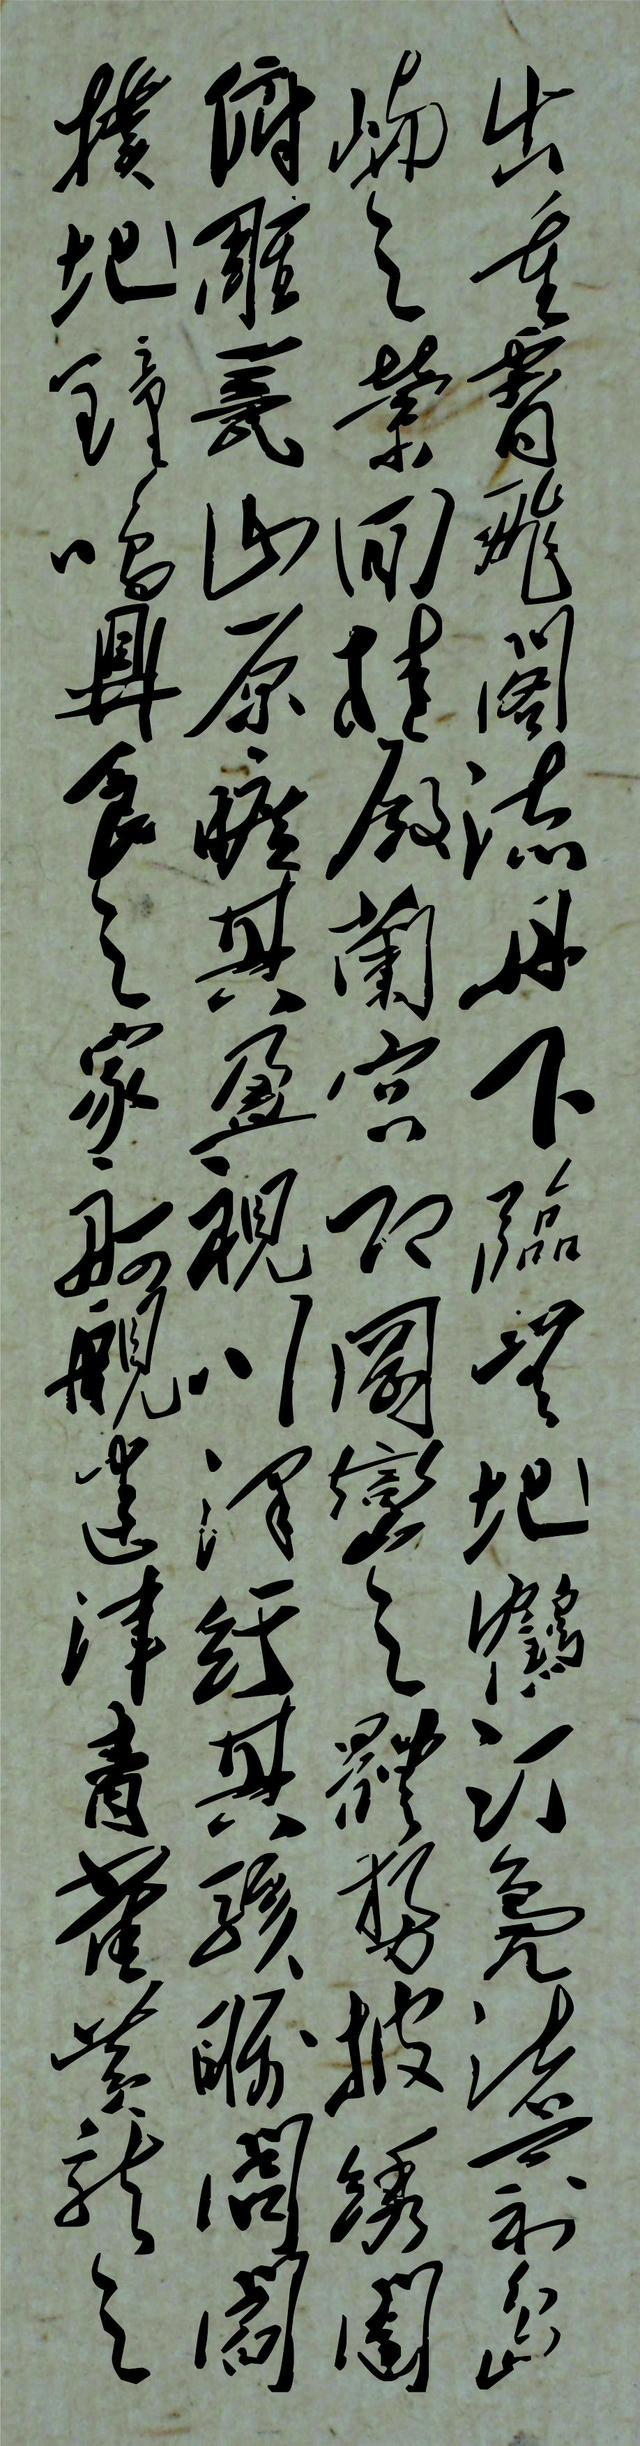 出重霄飛閣流丹下臨無地鶴汀鳧渚窮島
嶼之縈回桂殿蘭宮即岡巒之體勢披綉闥
俯雕甍山原曠其盈視川澤紆其駭矚閭閻
撲地鐘鳴鼎食之家舸艦迷津青雀黃龍之